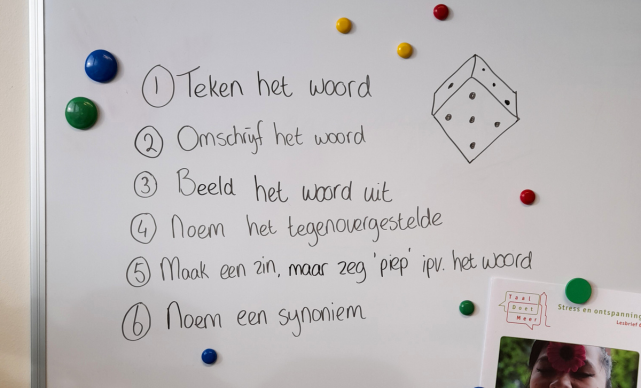 1 Teken het woord
2 Omschrijf het woord
3 Beeld het woord uit
4 Noem het tegenovergestelde
5 Maak een zin, maar zeg 'piep' ipv. het woord
6 Noem een synoniem
Taal
Doet
Meer
Stress en ontspanning
Lesbrief